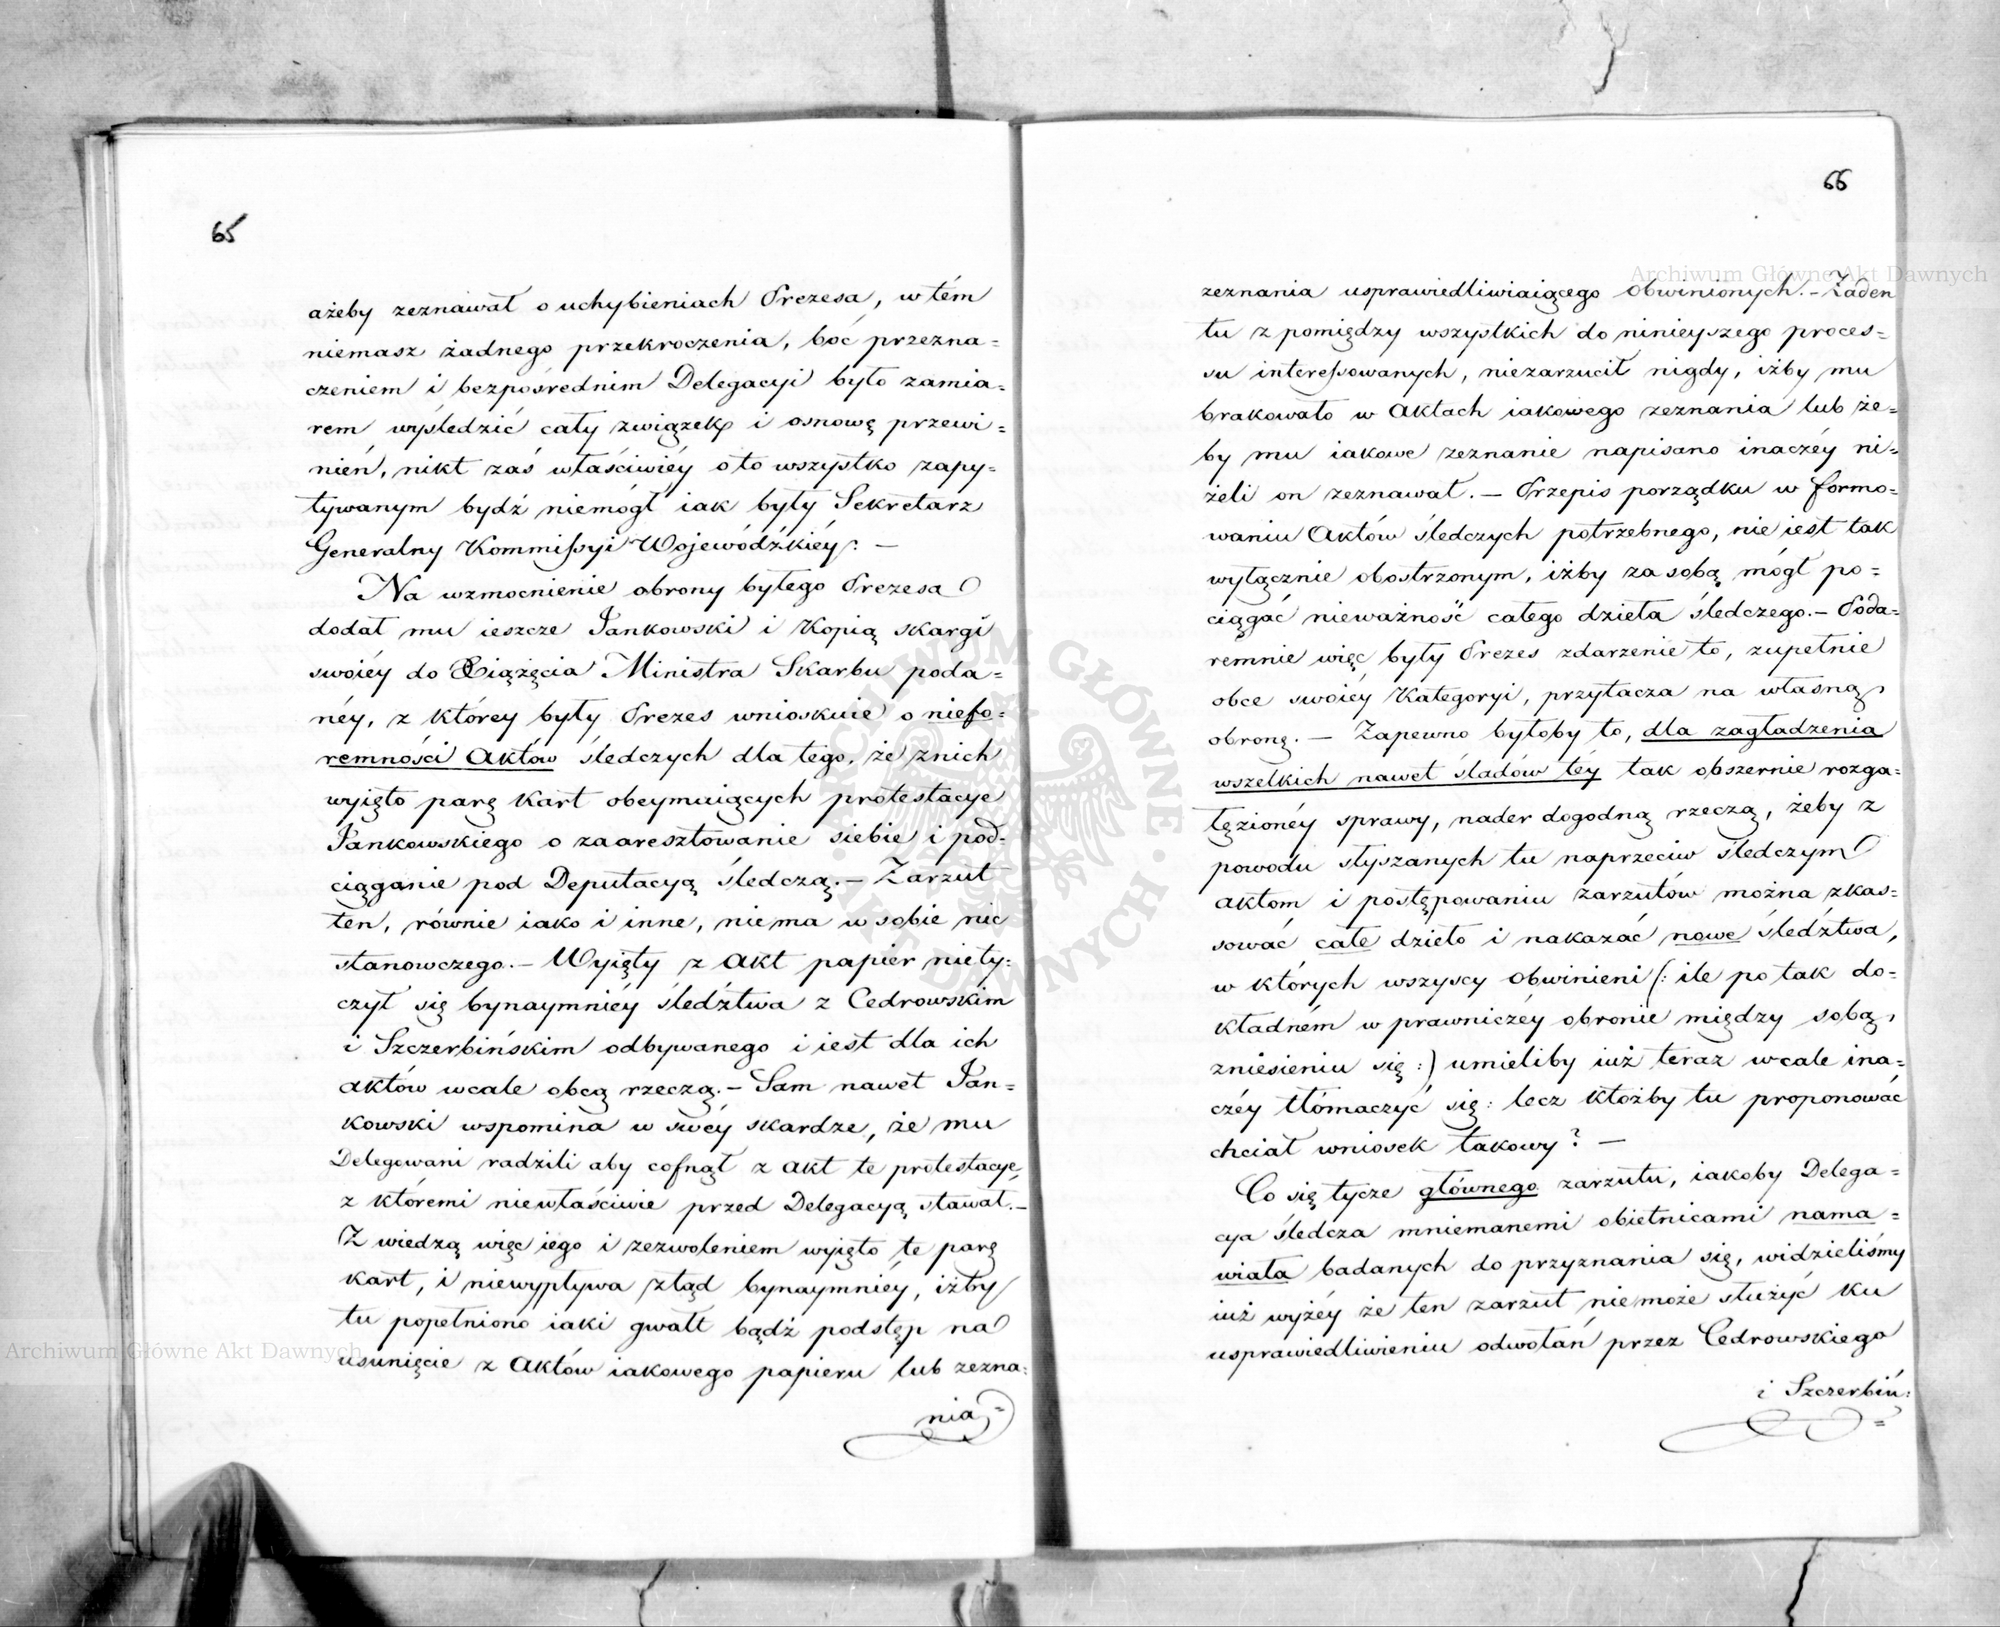 65
ażeby zeznawał o uchybieniach Prezesa, w tém
niemasz żadnego przekroczenia, boć przezna=
czeniem i bezpośrednim Delegacyi było zamia=
rem wyśledzić cały związek i osnowę przewi=
nień, nikt zaś właściwiéy o to wszystko zapy=
tywanym bydź niemógł iak były Sekretarz
Generalny Kommissyi Wojewódzkiéy. —
Na wzmocnienie obrony byłego Prezesa
dodał mu ieszcze Jankowski i Kopią skargi
swoiéy do Xiążęcia Ministra Skarbu poda=
néy, z którey były Prezes wnioskuie o niefo=
remności Aktów śledczych dla tego, że znich
wyięto parę Kart obeymuiących protestacye
Jankowskiego o zaaresztowanie siebie i pod=
ciąganie pod Deputacyą śledczą. — Zarzut
ten, równie iako i inne, niema w sobie nic
stanowczego. — Wyięty z Akt papier niety=
czył się bynaymniéy śledztwa z Cedrowskim
i Szczerbińskim odbywanego i iest dla ich
aktów wcale obcą rzeczą. — Sam nawet Jan=
kowski wspomina w swéy skardze, że mu
Delegowani radzili aby cofnął z Akt te protestacye,
z któremi niewłaściwie przed Delegacyą stawał. —
Z wiedzą więc iego i zezwoleniem wyięto te parę
kart, i niewypływa ztąd bynaymniéy, iżby
tu popełniono iaki gwałt bądź podstęp na
usunięcie z Aktów iakowego papieru lub zezna=
nia=
66
zeznania usprawiedliwiaiącego obwinionych. — Żaden
tu z pomiędzy wszystkich do ninieyszego proces=
su interessowanych, niezarzucił nigdy, iżby mu
brakowało w Aktach iakowego zeznania lub że=
by mu iakowe zeznanie napisano inaczéy ni=
żeli on zeznawał. — Przepis porządku w formo=
waniu Aktów śledczych potrzebnego, nie iest tak
wyłącznie obostrzonym, iżby za sobą mógł po=
ciągać nieważność całego dzieła śledczego. — Poda=
remnie więc były Prezes zdarzenie to, zupełnie
obce swoiéy Kategoryi, przytacza na własną
obronę. — Zapewno byłoby to, dla zagładzenia
wszelkich nawet śladów téy tak obszernie rozga=
łęzionéy sprawy, nader dogodną rzeczą, żeby z
powodu słyszanych tu naprzeciw śledczym
aktom i postępowaniu zarzutów można zkas=
sować całe dzieło i nakazać nowe śledztwa,
w których wszyscy obwinieni (: ile po tak do=
kładném w prawniczéy obronie między sobą
zniesieniu się :) umieliby iuż teraz wcale ina=
czéy tłómaczyć się: lecz któżby tu proponować
chciał wniosek takowy? —
Co się tycze głównego zarzutu, iakoby Delega=
cya śledcza mniemanemi obietnicami nama=
wiała badanych do przyznania się, widzieliśmy
iuż wyżéy że ten zarzut niemoże służyć ku
usprawiedliwieniu odwołań przez Cedrowskiego
i Szczerbiń=
Archiwum Główne Akt Dawnych
Archiwum Główne Akt Dawnych
ARCHIWUM GŁÓWNE AKT DAWNYCH